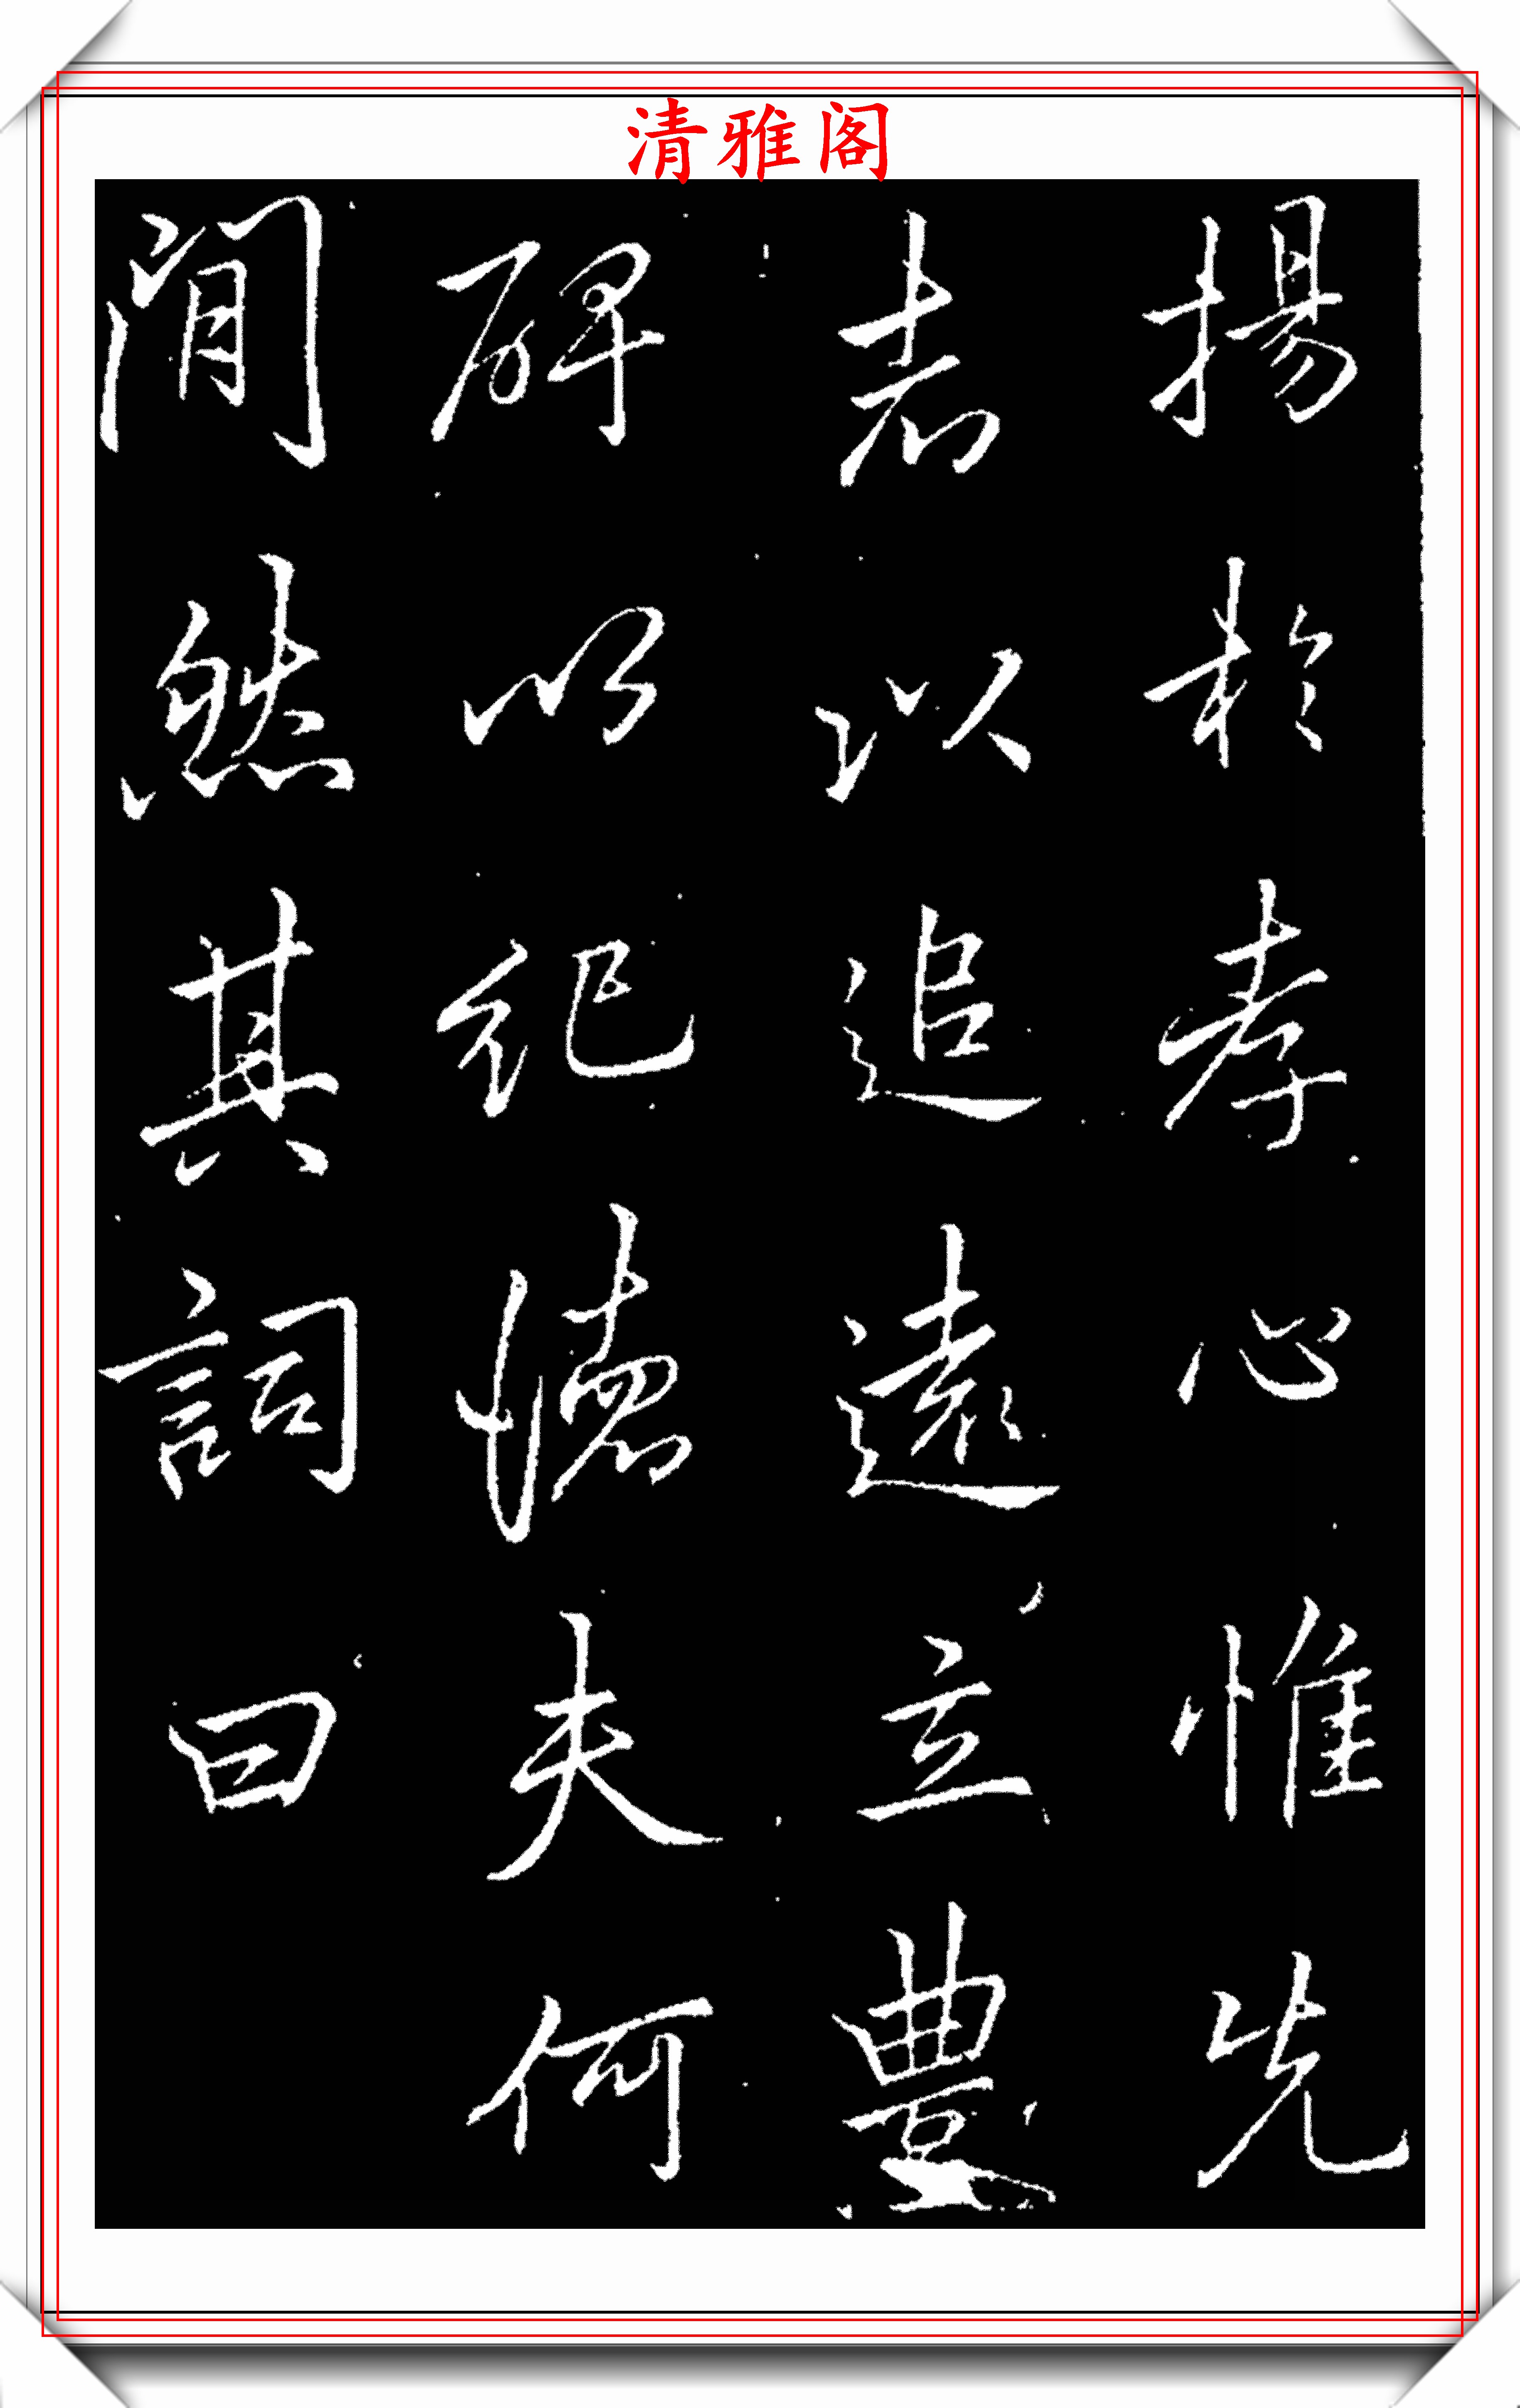 清雅阁
揚於孝心惟先
以追遠立豐
碑以紀德夫何
閒然其詞曰